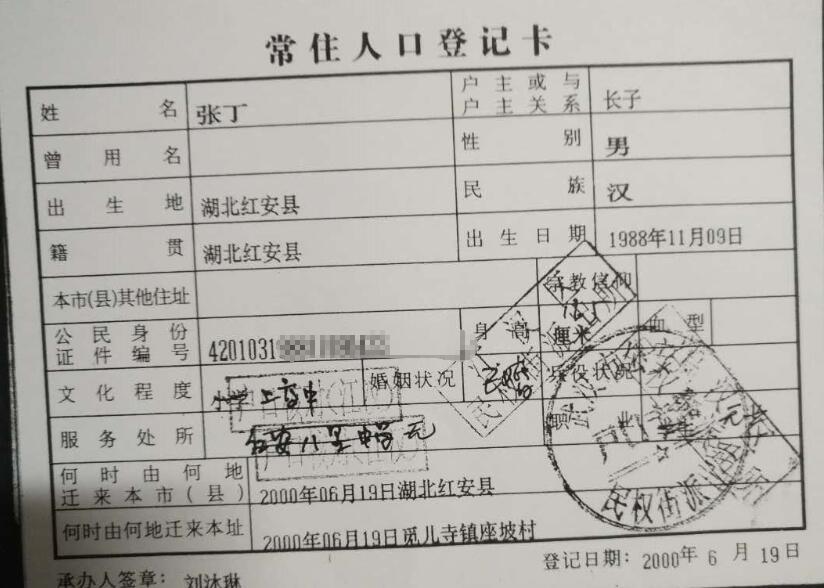 常住人口登记卡
姓名 张丁 户主或与户主关系 长子
曾用名 性别 男
出生地 湖北红安县 民族 汉
籍贯 湖北红安县 出生日期 1988年11月09日
本市(县)其他住址 宗教信仰
公民身份证件编号 4201031 身高 厘米 血型
文化程度 小学 上高中 婚姻状况 已婚 兵役状况
服务处所 职业
何时由何地迁来本市(县) 2000年06月19日湖北红安县
何时由何地迁来本址 2000年06月19日觅儿寺镇座坡村
民权街派
登记日期: 2000年 6 月 19日
承办人签章: 刘沐琳